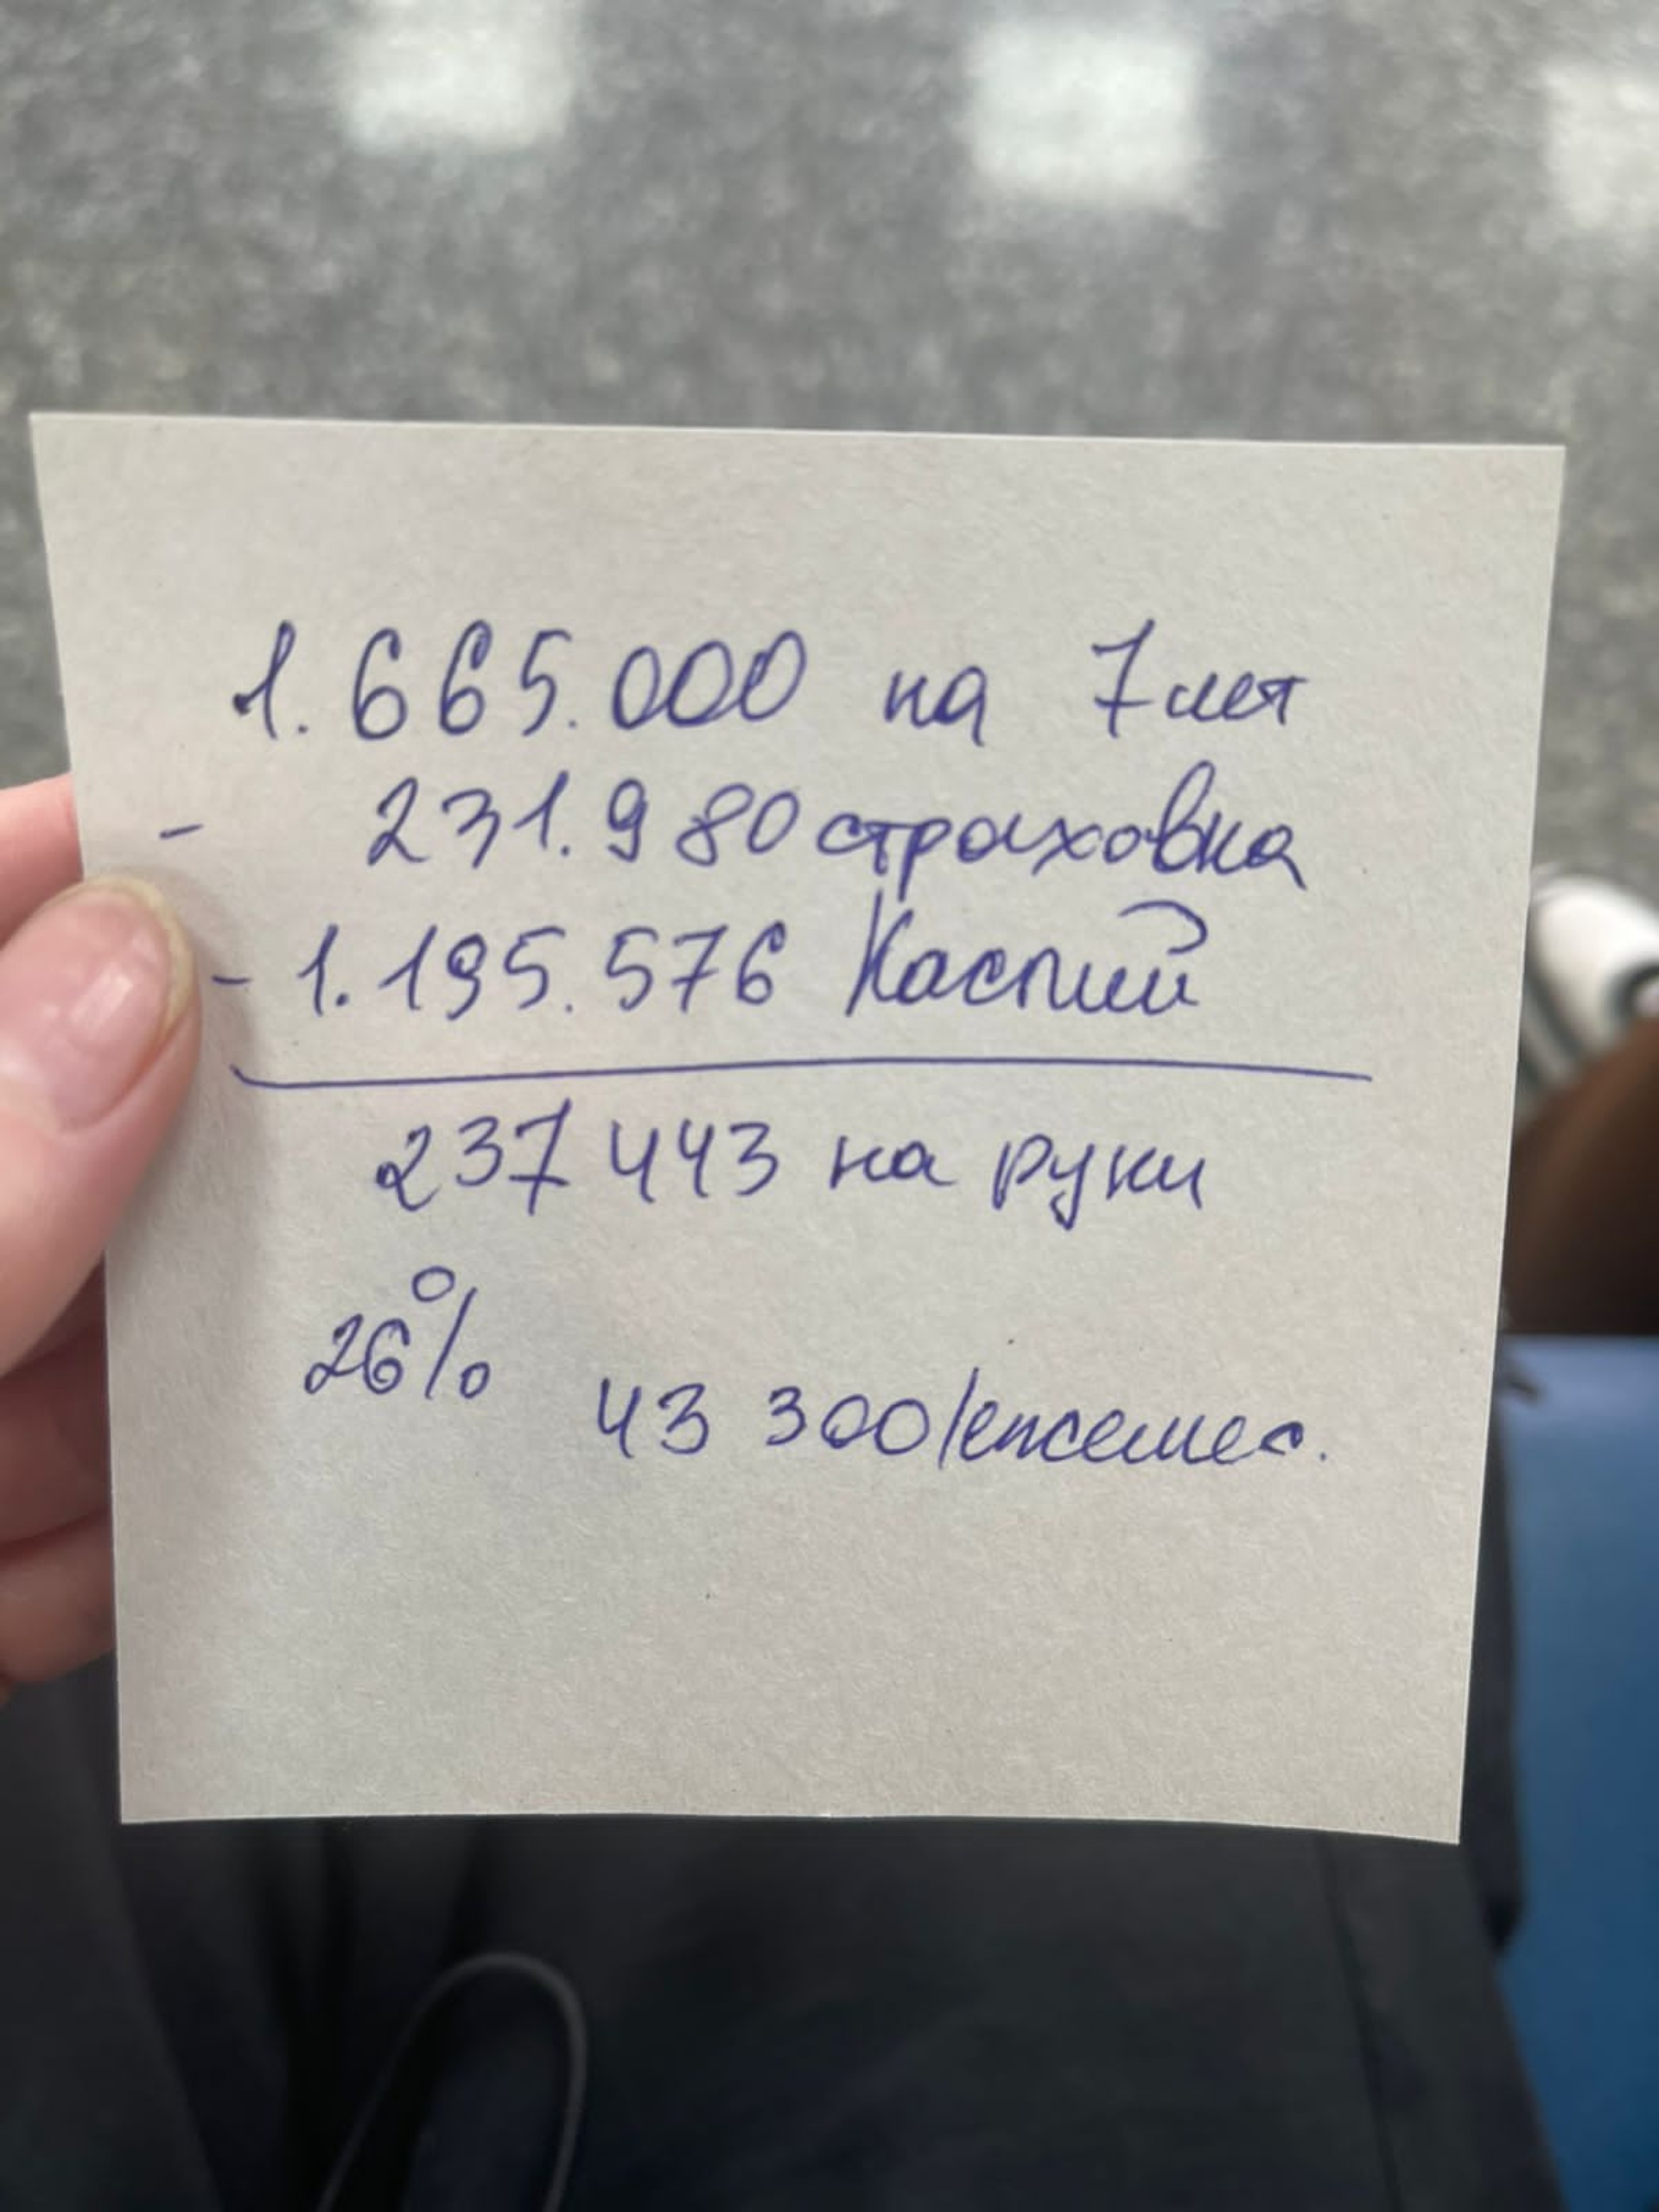 1.665.000 на 7 лет
- 231.980 страховка
- 1.195.576 Каспий
237 443 на руки
26%
43 300/ежемес.